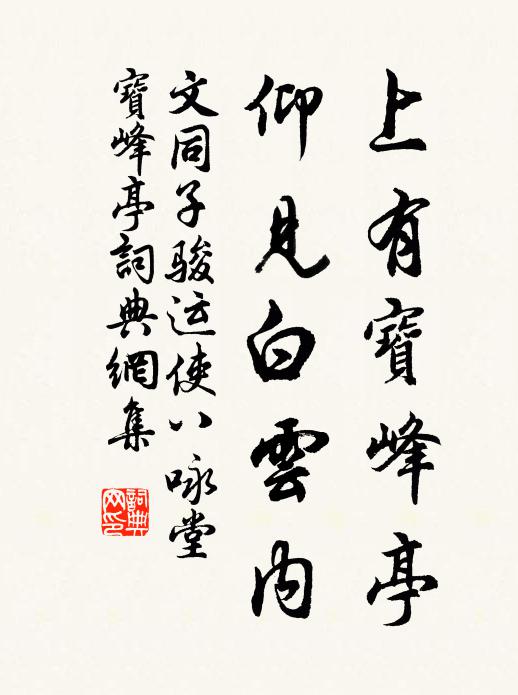 上有寶峰亭
仰见白雲内
文同子駿运使八咏堂
寶峰亭詞典網集
詞典网印